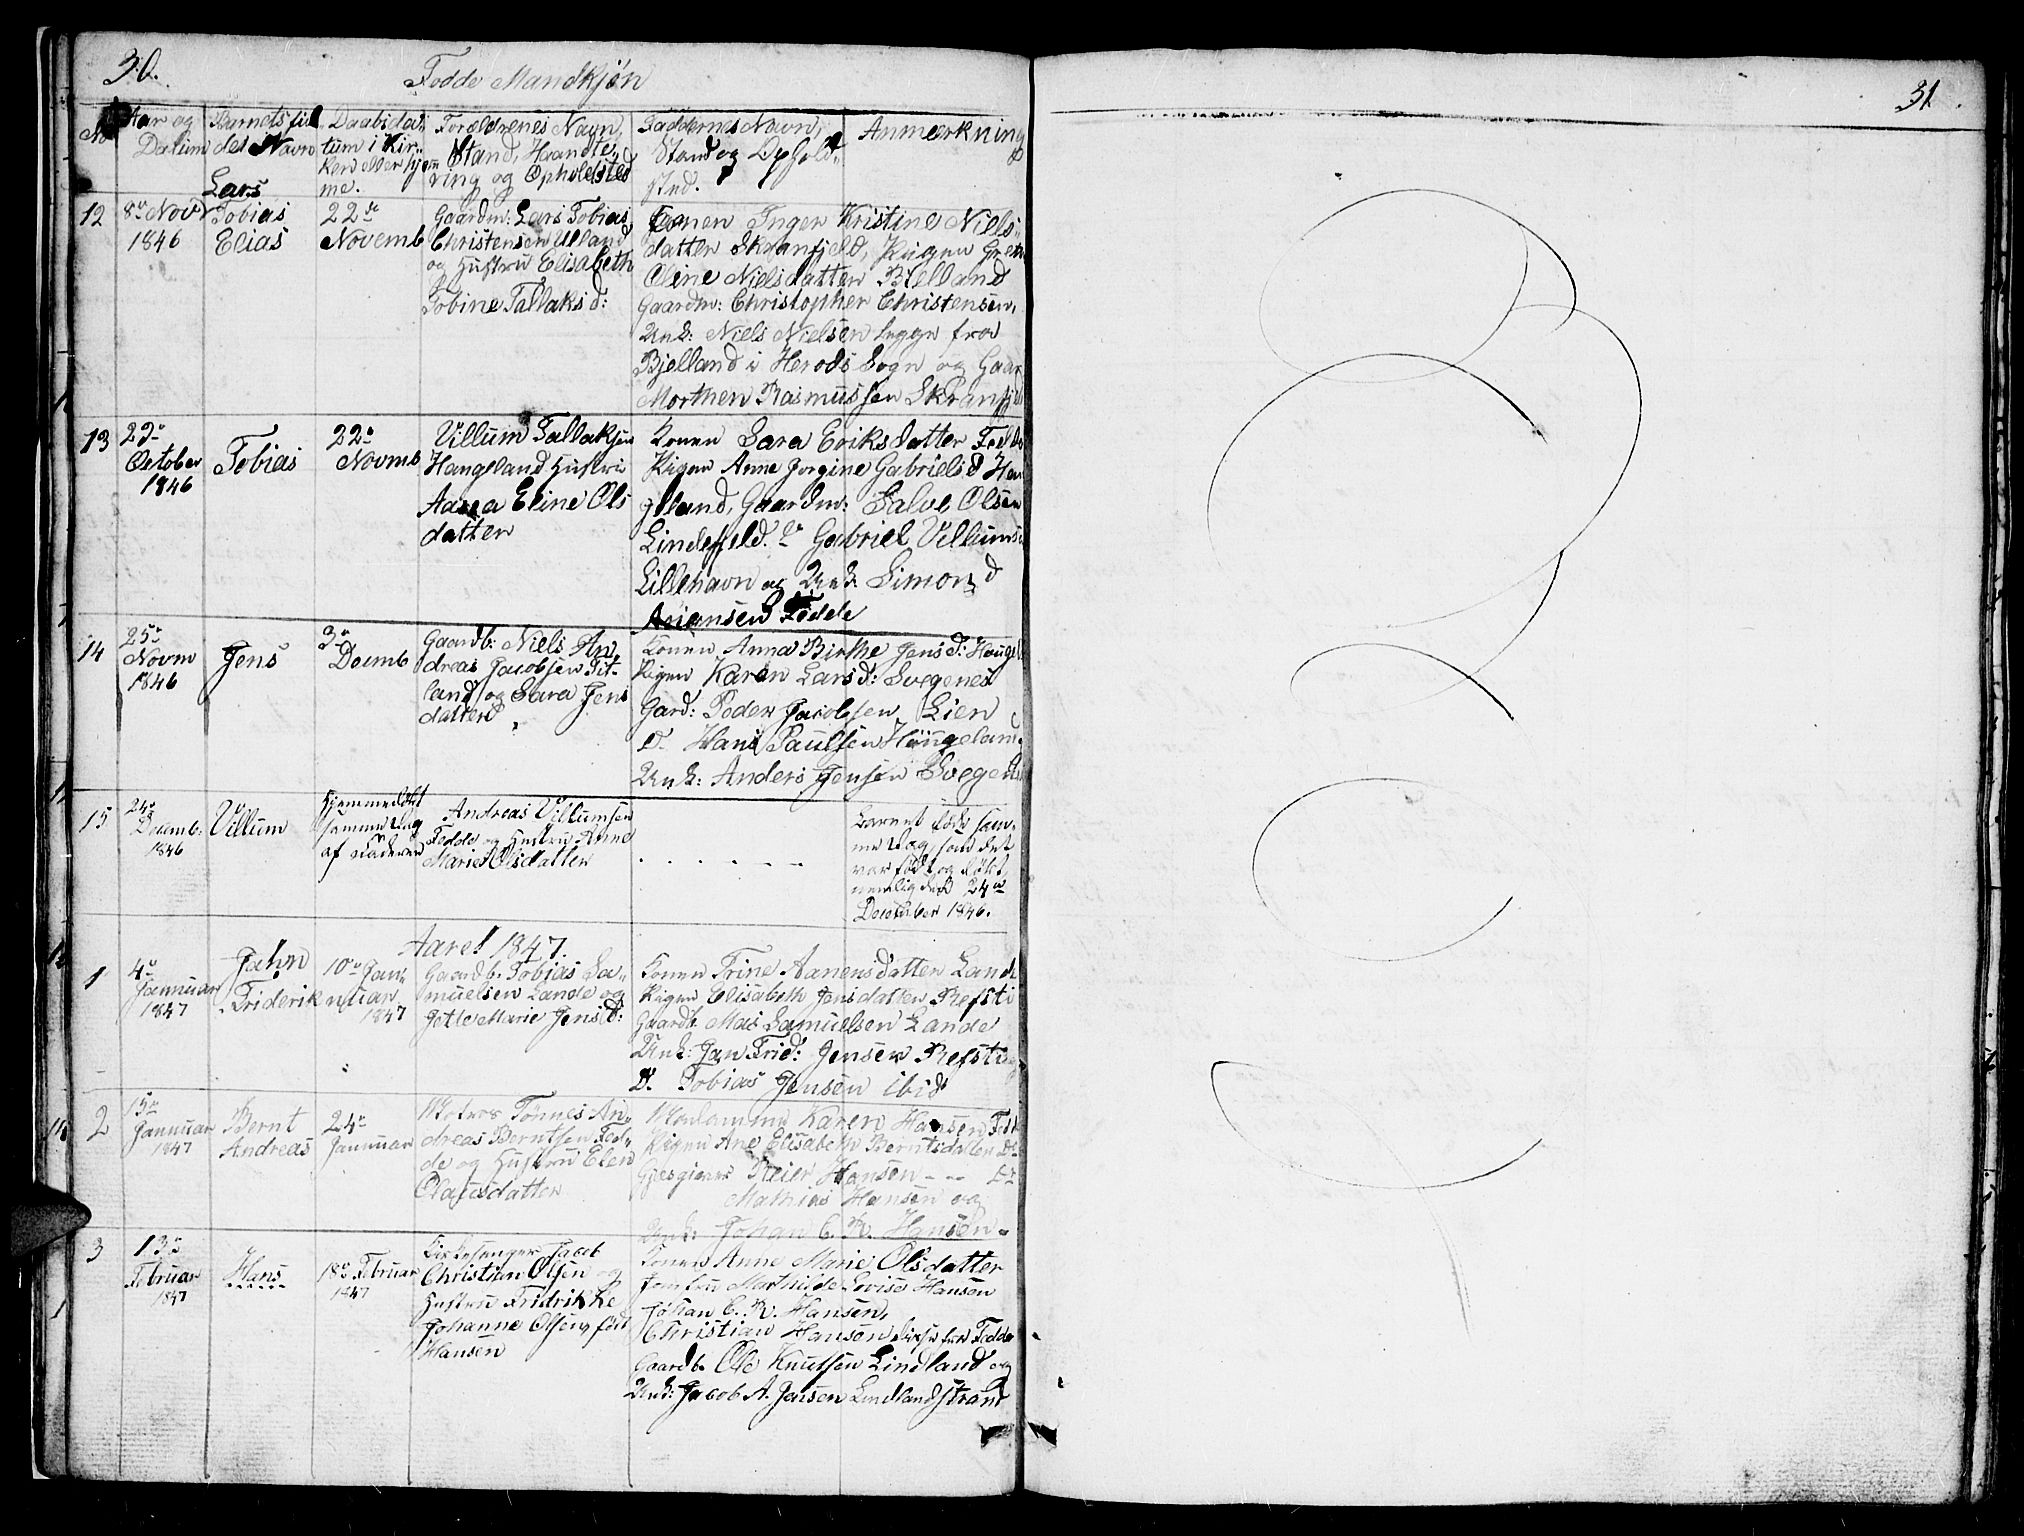 30.
Fødde Mandkjøn
31
No
Aar og
Datum
Barnets ful
des Navn
Daabsda„
tum i Kir„
ken eller hjem
me.
Forældrenes Navn,
Stand, Haandte„
ring og Opholdsted
Faddernes Navn,
Stand og Ophold„
sted.
Anmærkning
12
8de Novr
1846
Lars
Tobias
Elias
22de
Novemb
Gaardm: Lars Tobias
Christensen Ulland
og Hustru Elisabeth
Tobine Tallaksd:
Konen Inger Kristine Niels„
datter Skranfjeld, Pigen Grete
Oline Nielsdatter Bjelland
Gaardm: Christopher Christensen,
Unk: Niels Nielsen begge fra
Bjelland i Herods Sogn og Gaar
Morthen Rasmussen Skranfjeld
13
October
1846
Tobias
22de
Novmb
Villum Tallaksen
Haugeland Hustru
Eline Ols
datter
Konen Sara Eriksdatter Fedde
Pigen Anne Jorgine Gabrielsd Hau
geland, Gaardm: Salve Olsen
Lindefjeld. Do Gabriel Villums
Lillehavn og Unk. Simon
Arians Fedde
14
25de
Novm
1846
Jens
3de
Decmb
Gaardb. Niels An„
dreas Jacobsen Tit„
land og Sara Jens
datter
Konen Anna Birthe Jensd: Haugel
Pigen Karen Larsd: Svegenes
Gard: Peder Jacobsen Lien
D. Hans Paulsen Haugeland
Unk: Anders Jensen Svegenes
15
24de
Decemb:
1846
Villum
Hjemmedøbt
samme Dag
af Faderen
Andreas Villumsen
Fedde og Hustru Anne
Marie Olsdatter
Barnet døde sam„
me Dag, som det
var født og døbt,
nemlig den 24de
December 1846.
Aaret 1847.
1
4de
Januar
1847
Jahn
Friderik
10de Jan„
1847
Gaardb. Tobias Sa„
muelsen Lande og
Marie Jensd:
Konen Trine Aanensdatter Lande
Pigen Elisabeth Jensdatter Refsti
Gaardb. Mas Samuelsen Lande
Unk: Jan Frid: Jensen Refsti
D. Tobias Jensen ibid
2
15de
Januar
1847
Bernt
Andreas
24de
Januar
Matros Tønnes An„
dreas Berntsen Fed„
de og Hustru Elen
Olausdatter
Madamme Karen Hansen Fedde
Pigen Ane Elisabeth Berntsdatter Do
Gjesgiever Reier Hansen - - Do
Mathias Hansen og
Unk: Johan C. R. Hansen
3
13de
Februar
1847
Hans
18de Februar
1847
Kirkesanger Jacob
Christian Olsen og
Hustru Fridrikke
Johanne Olsen, født
Hansen
Konen Anne Marie Olsdatter
Jomfru Mathilde Lovise Hansen
Johan C. R. Hansen,
Christian Hansen, disse fra Fedde
Gaardb. Ole Knutsen Lindland og
Unk: Jacob A. Jensen Lindlandstrand